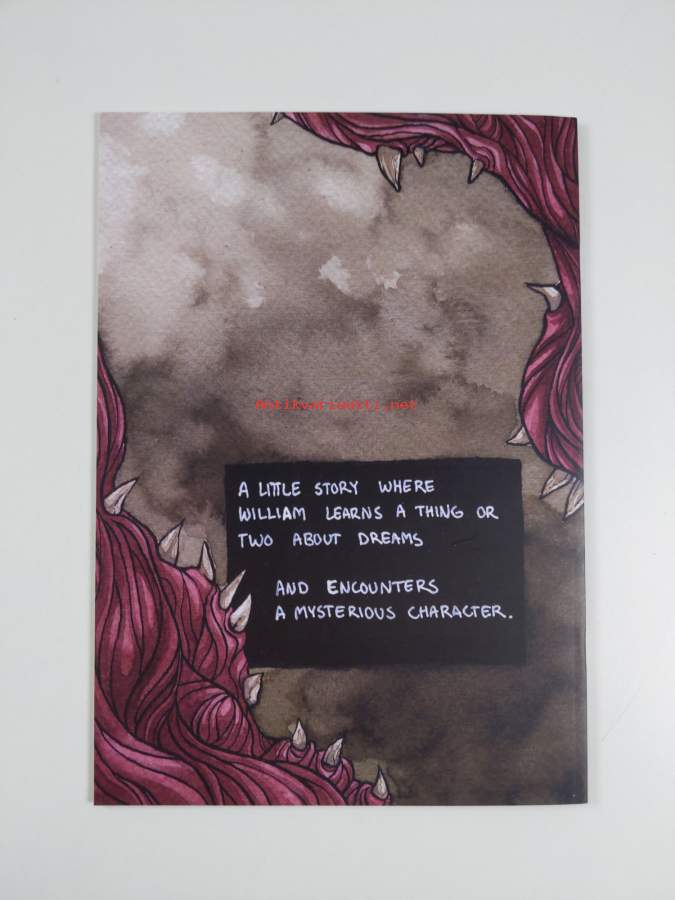 Antikvariaatti.net
A LITTLE STORY WHERE
WILLIAM LEARNS A THING OR
TWO ABOUT DREAMS
AND ENCOUNTERS
A MYSTERIOUS CHARACTER.